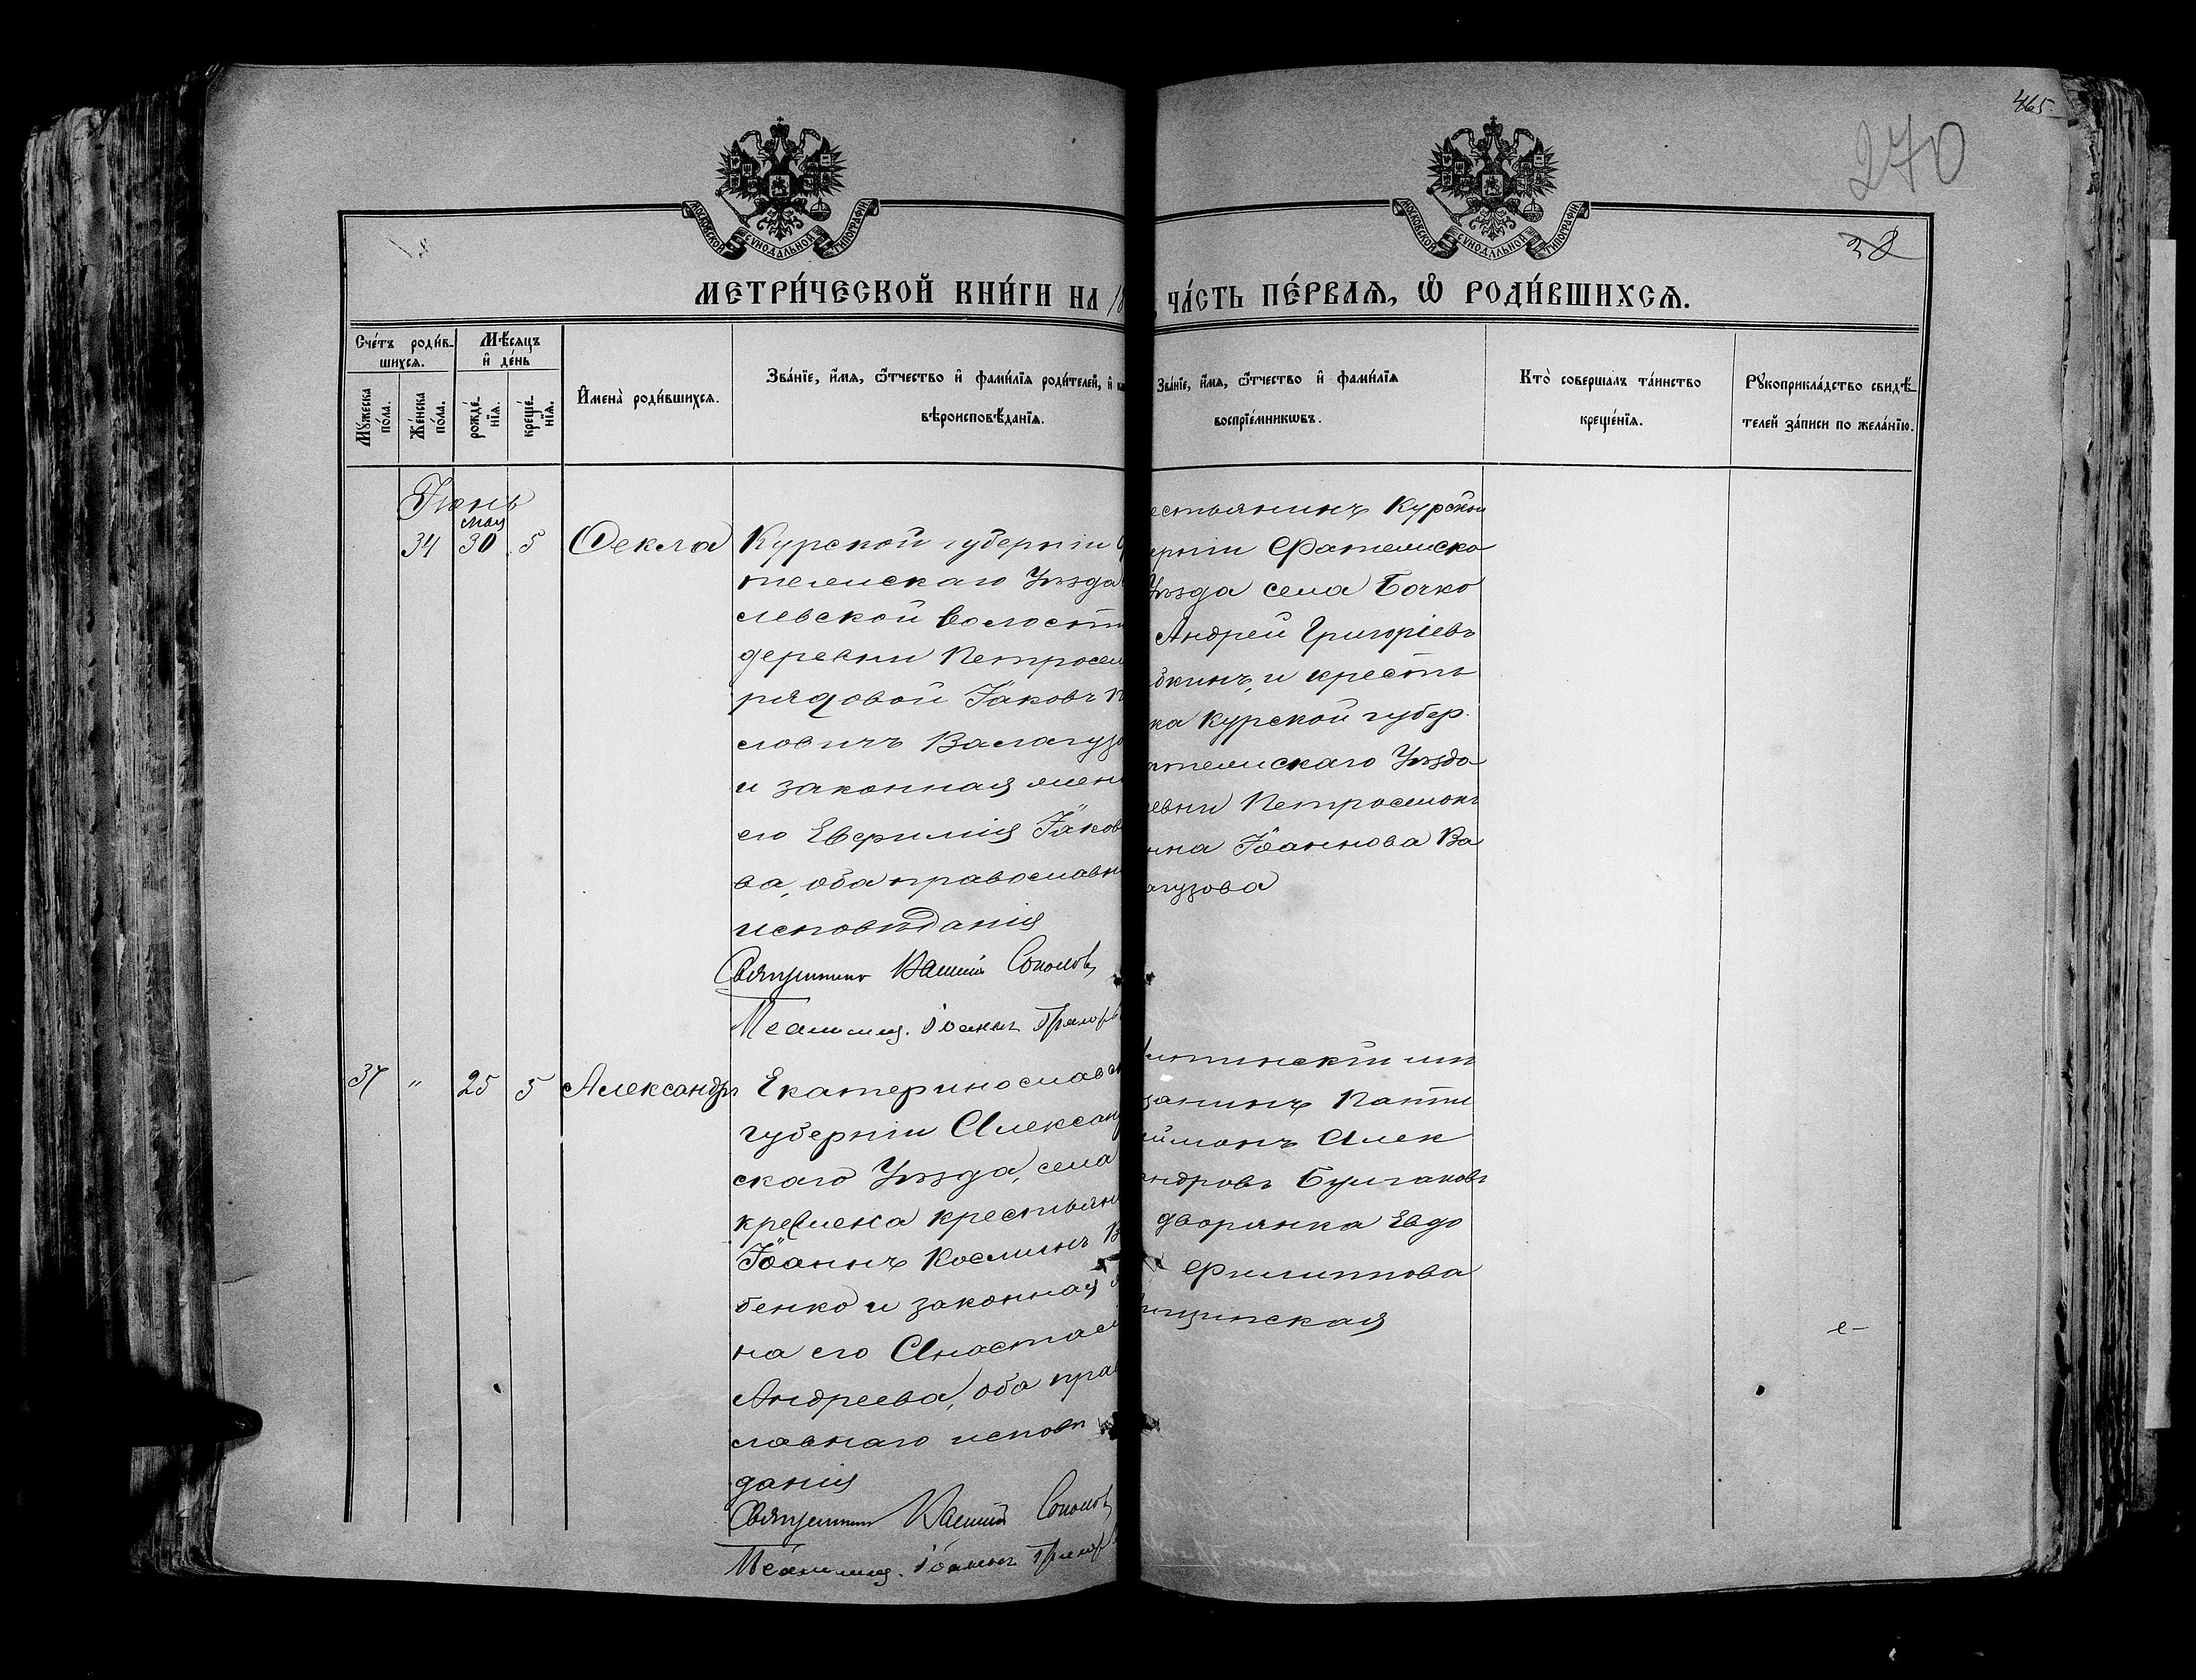 465.
270
38
МОСКОВСКОЙ СУНОДАЛЬНОЙ ТИПОГРАФІИ
МОСКОВСКОЙ СУНОДАЛЬНОЙ ТИПОГРАФІИ
МЕТРИ́ЧЕСКОЙ КНИ́ГИ НА 18
ЧА́СТЬ ПЕ́РВАЯ, Ѿ РОДИ́ВШИХСЯ.
Сче́тъ роди́в-
шихся.
Мꙋжеска по́ла.
Же́нска по́ла.
Мѣ́сяцъ
и҆ де́нь
рожде́нїя.
креще́нїя.
И҆мена̀ роди́вшихся.
Зва́нїе, и҆́мя, ѻ҆́тчество и҆ фами́лїя роди́телей, и҆
вѣроисповѣ́данїя.
Зва́нїе, и҆́мя, ѻ҆́тчество и҆ фами́лїя
воспрїе́мниковъ.
Кто̀ соверша́лъ та́инство
креще́нїя.
Рꙋкоприкла́дство свидѣ́-
телей за́писи по жела́нїю.
Іюнь
мая
34 30 5 Ѳекла
Курской губерніи
тежскаго Уѣзда
левской волости
деревни Петросел
рядовой Іаковъ П
словичъ Валагузо
и законная жен
его Евфимія Іаков
ва, оба православн
исповѣданія
Священникъ Василій Соколовъ
Псаломщ. Іоаннъ Григорь
естьянинъ Курской
ерніи Фатежска
Уѣзда села Бочко
Андрей Григоріевъ
бкинъ, и кресть
ка Курской губер.
тежскаго Уѣзда
евни Петроселокъ
нна Іоаннова Ва
агузова
37 " 25 5 Александръ
Екатеринославск
губерніи Алексан
скаго Уѣзда, села
кременка крестьян
Іоаннъ Косминъ В
бенко и законная
на его Анастас
Андреева, оба пра
славнаго исповѣ
данія
Священникъ Василій Соколовъ
Псаломщ. Іоаннъ Григорь
лтинскій мѣ
щанинъ Панте
еймонъ Алек
андровъ Булгаковъ
дворянка Евдо
Филиппова
щинская